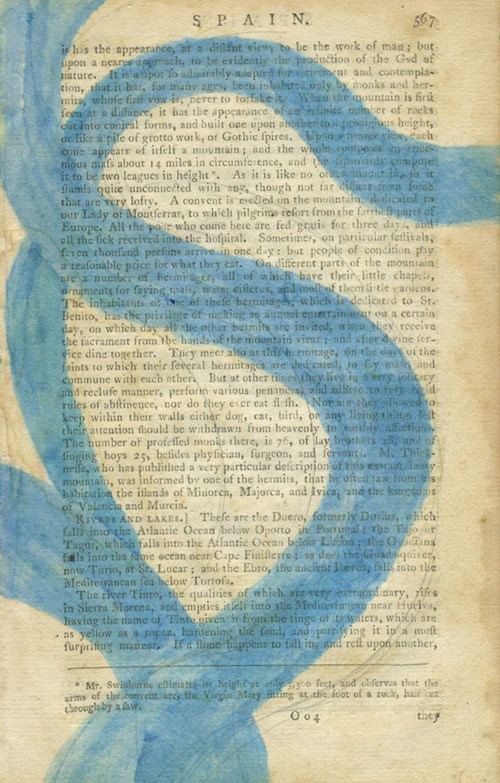 SPAIN. 567
it has the appearance, at a distant view, to be the work of man; but
upon a nearer approach, to be evidently the production of the God of
nature. It is a spot so admirably adapted for retirement and contempla-
tion, that it has, for many ages, been inhabited only by monks and her-
mits, whose first vow is, never to forsake it. When the mountain is first
seen at a distance, it has the appearance of an infinite number of rocks
cut into conical forms, and built one upon another to a prodigious height,
or like a pile of grotto work, or Gothic spires. Upon a nearer view, each
cone appears of itself a mountain; and the whole composes an enor-
mous mass about 14 miles in circumference, and the Spaniards compute
it to be two leagues in height*. As it is like no other mountain, so it
stands quite unconnected with any, though not far distant from some
that are very lofty. A convent is erected on the mountain, dedicated to
our Lady of Montserrat, to which pilgrims resort from the farthest parts of
Europe. All the poor who come here are fed gratis for three days, and
all the sick received into the hospital. Sometimes, on particular festivals,
seven thousand persons arrive in one day; but people of condition pay
a reasonable price for what they eat. On different parts of the mountain
are a number of hermitages, all of which have their little chapels,
ornaments for saying mass, water cisterns, and most of them little gardens.
The inhabitants of one of these hermitages, which is dedicated to St.
Benito, has the privilege of making an annual entertainment on a certain
day, on which day all the other hermits are invited, when they receive
the sacrament from the hands of the mountain vicar; and after divine ser-
vice dine together. They meet also at this hermitage, on the days of the
saints to which their several hermitages are dedicated, to say mass, and
commune with each other. But at other times they live in a very solitary
and recluse manner, perform various penances, and adhere to very rigid
rules of abstinence, nor do they ever eat flesh. Nor are they allowed to
keep within their walls either dog, cat, bird, or any living thing, lest
their attention should be withdrawn from heavenly to earthly affections.
The number of professed monks there, is 76, of lay brothers 28, and of
singing boys 25, besides physician, surgeon, and servants. M. Thick-
nesse, who has published a very particular description of this extraordinary
mountain, was informed by one of the hermits, that he often saw from his
habitation the islands of Minorca, Majorca, and Ivica, and the kingdoms
of Valencia and Murcia.
RIVERS AND LAKES.] These are the Duero, formerly Durius, which
falls into the Atlantic Ocean below Oporto in Portugal; the Tajo or
Tagus, which falls into the Atlantic Ocean below Lisbon; the Guadiana
falls into the same ocean near Cape Finisterre; as does the Guadalquiver,
now Turio, at St. Lucar; and the Ebro, the ancient Iberus, falls into the
Mediterranean sea below Tortosa.
The river Tinto, the qualities of which are very extraordinary, rises
in Sierra Morena, and empties itself into the Mediterranean near Huelva,
having the name of Tinto given it from the tinge of its waters, which are
as yellow as a topaz, hardening the sand, and petrifying it in a most
surprising manner. If a stone happens to fall in, and rest upon another,
* Mr. Swinburne estimates its height at only 3,300 feet, and observes that the
arms of the convent are, the Virgin Mary sitting at the foot of a rock, half cut
through by a saw.
Oo4 they